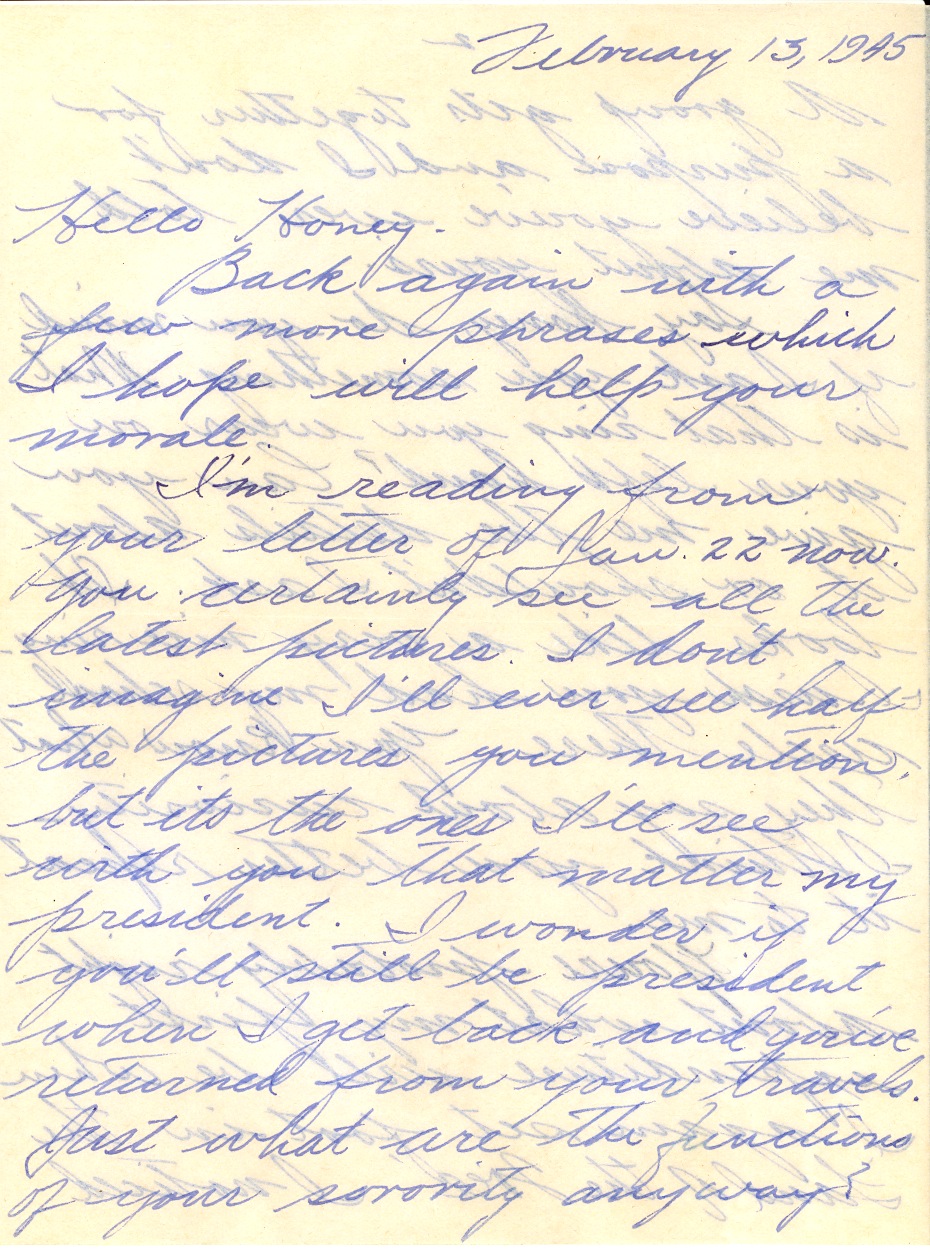 February 13, 1945
Hello Honey.
Back again with a
few more phrases which
I hope will help your
morale.
I'm reading from
your letter of Jan. 22 now.
You certainly see all the
latest pictures. I don't
imagine I'll ever see half
the pictures you mention,
but its the ones I'll see
with you that matter my
president. I wonder if
you'll still be president
when I get back and you've
returned from your travels.
Just what are the functions
of your sorority anyway?